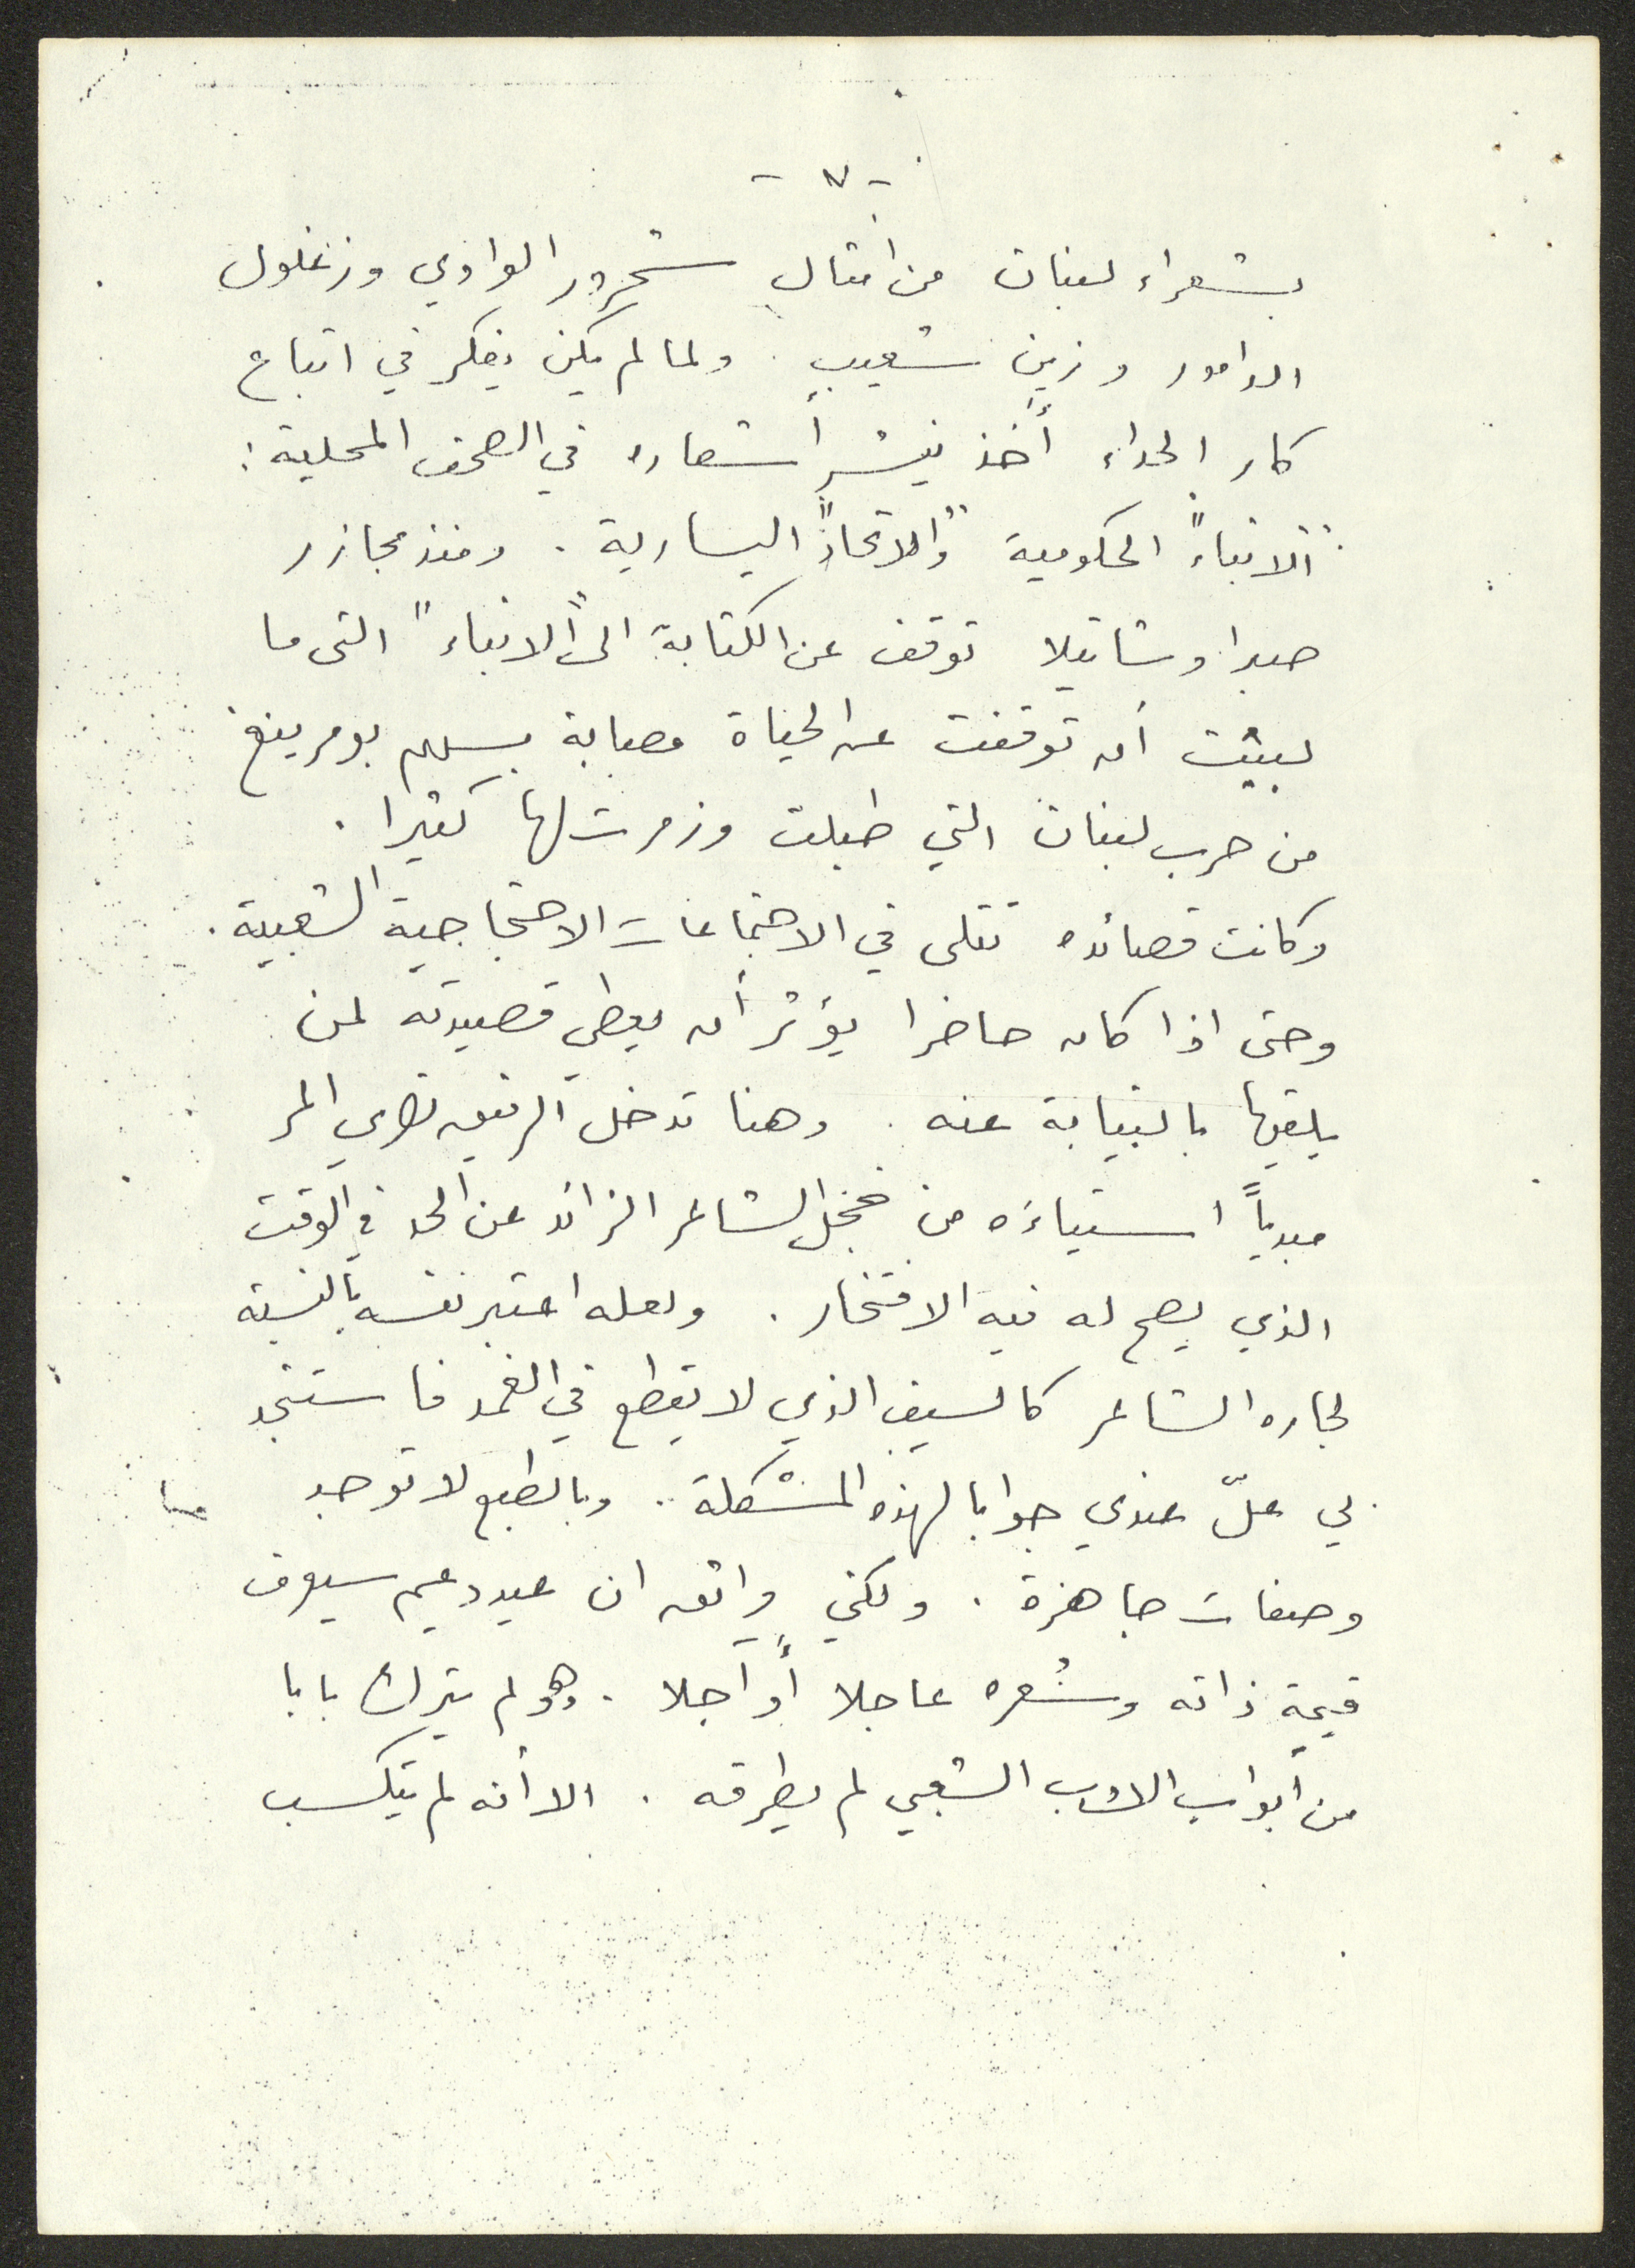 - ٧ -
بشعراء لبنان من امثال شحرور الوادي وزغلول
الدامور وزين شعيب . ولما لم يكن يفكر في اتباع
كار الحداء أخذ ينشر أشعاره في الصحف المحلية :
"الانباء" الحكومية "والاتحاد" اليسارية . ومنذ مجازر
صبرا وشاتيلا توقف عن الكتابة الى "الانباء" التى ما
لبثت أن توقفت عن الحياة مصابة بسهم بومرينغ
من حرب لبنان التي طبلت وزمرت لها كثيرا .
وكانت قصائده تتلى في الاجتماعات الاحتجاجية الشعبية .
وحتى اذا كان حاضرا يؤثر أن يعطي قصيدته لمن
يلقيها بالنيابة عنه . وهنا تدخل الرفيق نصري المر
مبدياً استياءه من خجل الشاعر الزائد عن الحد في الوقت
الذي يصح له فيه الافتخار . ولعله اعتبر نفسه بالنسبة
لجاره الشاعر كالسيف الذي لا يقطع في الغمد فاستنجد
بي علّ عندي جوابا لهذه المشكلة . وبالطبع لا توجد
وصفات جاهزة . ولكني واثق ان عيد دعيم سيعرف
قيمة ذاته وشعره عاجلا أو آجلا . وهو لم يترك بابا
من أبواب الأدب الشعبي لم يطرقه . الا أنه لم يتكسب